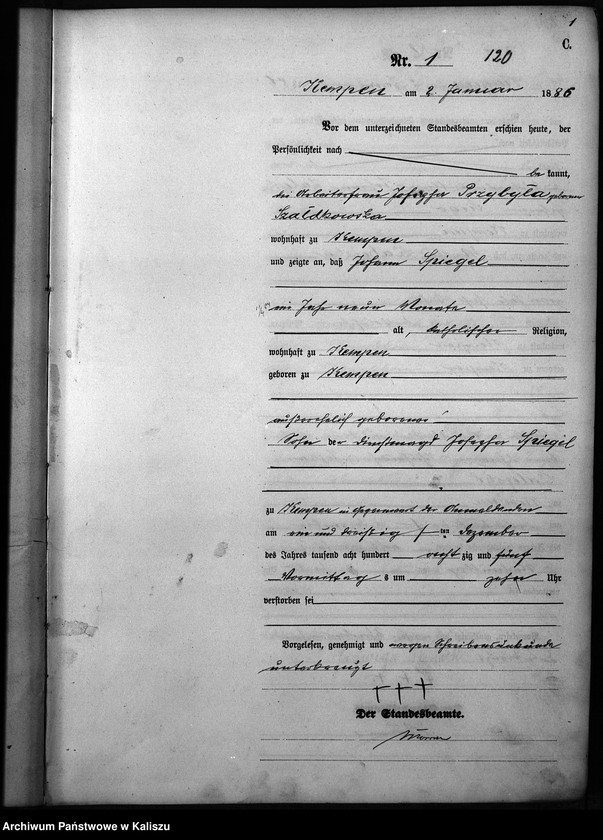 1
C.
Nr. 1 120
Kempen am 2. Januar 1886
Vor dem unterzeichneten Standesbeamten erschien heute, der
Persönlichkeit nach
be kannt,
die Arbeiterfrau Josepha Przybyla geborene
Szaldkowska
wohnhaft zu Kempen
und zeigte an, daß Johann Spiegel
ein Jahr neun Monate
alt, katholischer Religion,
wohnhaft zu Kempen
geboren zu Kempen
außerehelich geborener
Sohn der Dienstmagd Josepha Spiegel
zu Kempen in Gegenwart der
am ein und dreißig ten Dezember
des Jahres tausend acht hundert acht zig und fünf
Vormittag s um zehn Uhr
verstorben sei
Vorgelesen, genehmigt und wegen Schreibensunkunde
unterkreuzt
† † †
Der Standesbeamte.
Archiwum Państwowe w Kaliszu